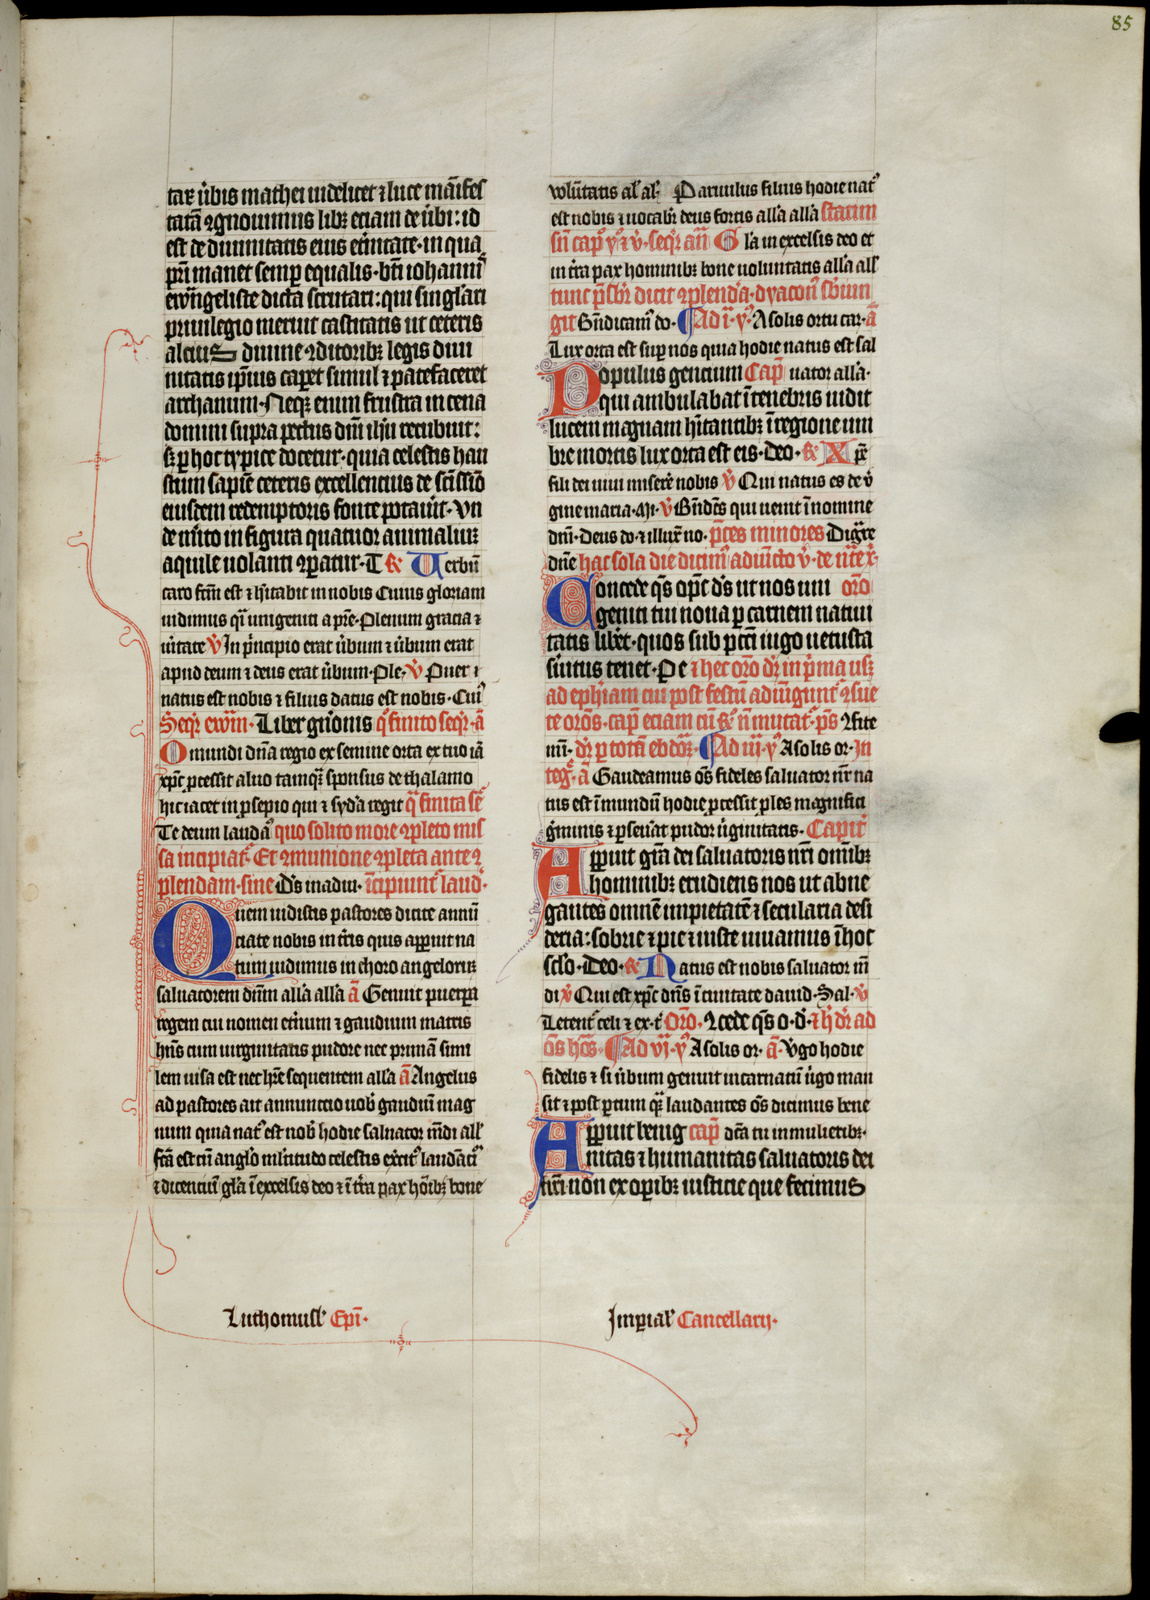 85
tax ũbis mathei uidelicet ⁊ luce mãifes
tatã ꝯgnouimus libꝫ eciam de ũbi: id
est de diuinitatis eius et̃nitate · in qua
pr̃i manet semꝑ equalis · bt̃i iohanni
ew̃ngeliste dicta scrutari: qui sing̃lari
priuilegio meruit castitatis ut ceteris
alcius diuine ꝯditoribꝫ legis diui
nitatis ip̃ius caꝑet simul ⁊ patefaceret
archanum · Neqꝫ enim frustra in cena
domini supra pectus dñi ih̃u recubuit:
sꝫ ꝑ hoc typice docetur · quia celestis hau
stum sapiẽ ceteris excellencius de
eiusdem redemptoris fonte potauit · Vn
de m̃ito in figura quatuor animaliũ
aquile uolanti ꝯparatur · T ℟ Uerbũ
caro fcm̃ est ⁊ h̃itabit in nobis Cuius gloriam
uidimus q̃i unigeniti a pr̃e · Plenum gracia ⁊
ũitate ℣ In p̃ncipio erat ũbum ⁊ ũbum erat
apud deum ⁊ deus erat ũbum · Ple · ℣ Puer
natus est nobis ⁊ filius datus est nobis · Cui
Seqr̃ ew̃m · Liber gñonis q̃ finito seqr̃ · ã
O mundi dñia regio ex semine orta ex tuo iã
xp̃c ꝓcessit aluo tamqꝫ sponsus de thalamo
hic iacet in p̃sepio qui ⁊ syd̃a regit q̃ finita
Te deum laudã quo solito more ꝯpleto mis
sa incipiat · Et ꝯmunione ꝯpleta ante ꝯ
plendam · sine D̃s in adiu · ĩcipiunt̃ laud ·
Quem uidistis pastores dicite annũ
ciate nobis in t̃ris quis apparuit na
tum uidimus in choro angelorum
saluatorem dñm alla alla ã Genuit puerꝑa
regem cui nomen et̃num ⁊ gaudium matris
hñs cum uirginitatis pudore nec primã simi
lem uisa est nec hr̃e sequentem alla ã Angelus
ad pastores ait annuncio uob̃ gaudiũ mag
num quia nat᷒ est nob̃ hodie saluator mũdi all
fcã est cũ ang̃lo ml̃titudo celestis
⁊ dicenciũ gl̃a ĩ excelsis deo ⁊ ĩ t̃ra pax hõibꝫ bone
wlũtatis al̃ al̃ · Paruulus filius hodie nat᷒
est nobis ⁊ uocabr̃ deus fortis alla alla statim
sñ cap̃ ỹ ⁊ ℣ · seqr̃ añ Gl̃a in excelsis deo et
in t̃ra pax hominibꝫ bone uoluntatis alla all
tunc p̃sbr̃ dicit ꝯplend̃a · dyacoñ
git Bñdicam᷒ do · Ad i · ỹ · A solis ortu car · ã
Lux orta est suꝑ nos quia hodie natus est sal
Populus gencium Cap̃ uator alla ·
qui ambulabat ĩ tenebris uidit
lucem magnam h̃itantibꝫ ĩ regione um
bre mortis lux orta est eis · Deo · ℟ Xp̃e
fili dei uiui misere nobis ℣ Qui natus es de ũ
gine maria · ℣ Bñdc̃s qui uenit ĩ nomine
dñi · Deus do · ⁊ illux̃ no · p̃ces minores Dig̃re
dñe hac sola die dicim᷒ adiũcto ℣ · de
Concede q̃s op̃c d̃s ut nos uni oro
geniti tui noua ꝑ carnem natiui
tatis lib̃et · quos sub pcc̃i iugo uetusta
s̃uitus tenet · Pe ⁊ hec oro dr̃ in p̃ma usqꝫ
ad eph̃iam cui post festũ adiũgunt̃ ꝯsue
te orõs · cap̃ eciam cũ ℟ ñ mutat̃ · p̃s
dr̃ ꝑ totã ebdoã · Ad iii · ỹ A solis or · In
teg̃ · ã Gaudeamus õs fideles saluator nr̃ na
tus est ĩ mundũ hodie ꝓcessit ꝓles magnifici
g̃minis ⁊ ꝑseũat pudor ũginitatis · Capit̃
Apparuit gr̃a dei saluatoris nr̃i omĩbꝫ
hominibꝫ erudiens nos ut abne
gantes omnẽ impietatẽ ⁊ secularia desi
deria: sobrie ⁊ pie ⁊ iuste uiuamus ĩ hoc
sclo · Deo · ℟ Natus est nobis saluator m
di ℣ Qui est xp̃c dñs ĩ ciuitate dauid · Sal · ℣
Letent̃ celi ⁊ ex · t̃ Oro · ꝯcede q̃s o · d̃ · ⁊ h̃ dr̃ ad
õs hõs · Ad vi · ỹ A solis or · ã · Ṽgo hodie
fidelis ⁊ si ũbum genuit incarnatũ ũgo man
sit ⁊ post ꝑtum qꝫ laudantes õs dicimus bene
Apparuit benig cap̃ dc̃a tu in mulieribꝫ ·
nitas ⁊ humanitas saluatoris dei
nr̃i nõn ex oꝑibꝫ iusticie que fecimus
Luthomusl᷒ Ep̃i ·
Imꝑial᷒ Cancellarij ·